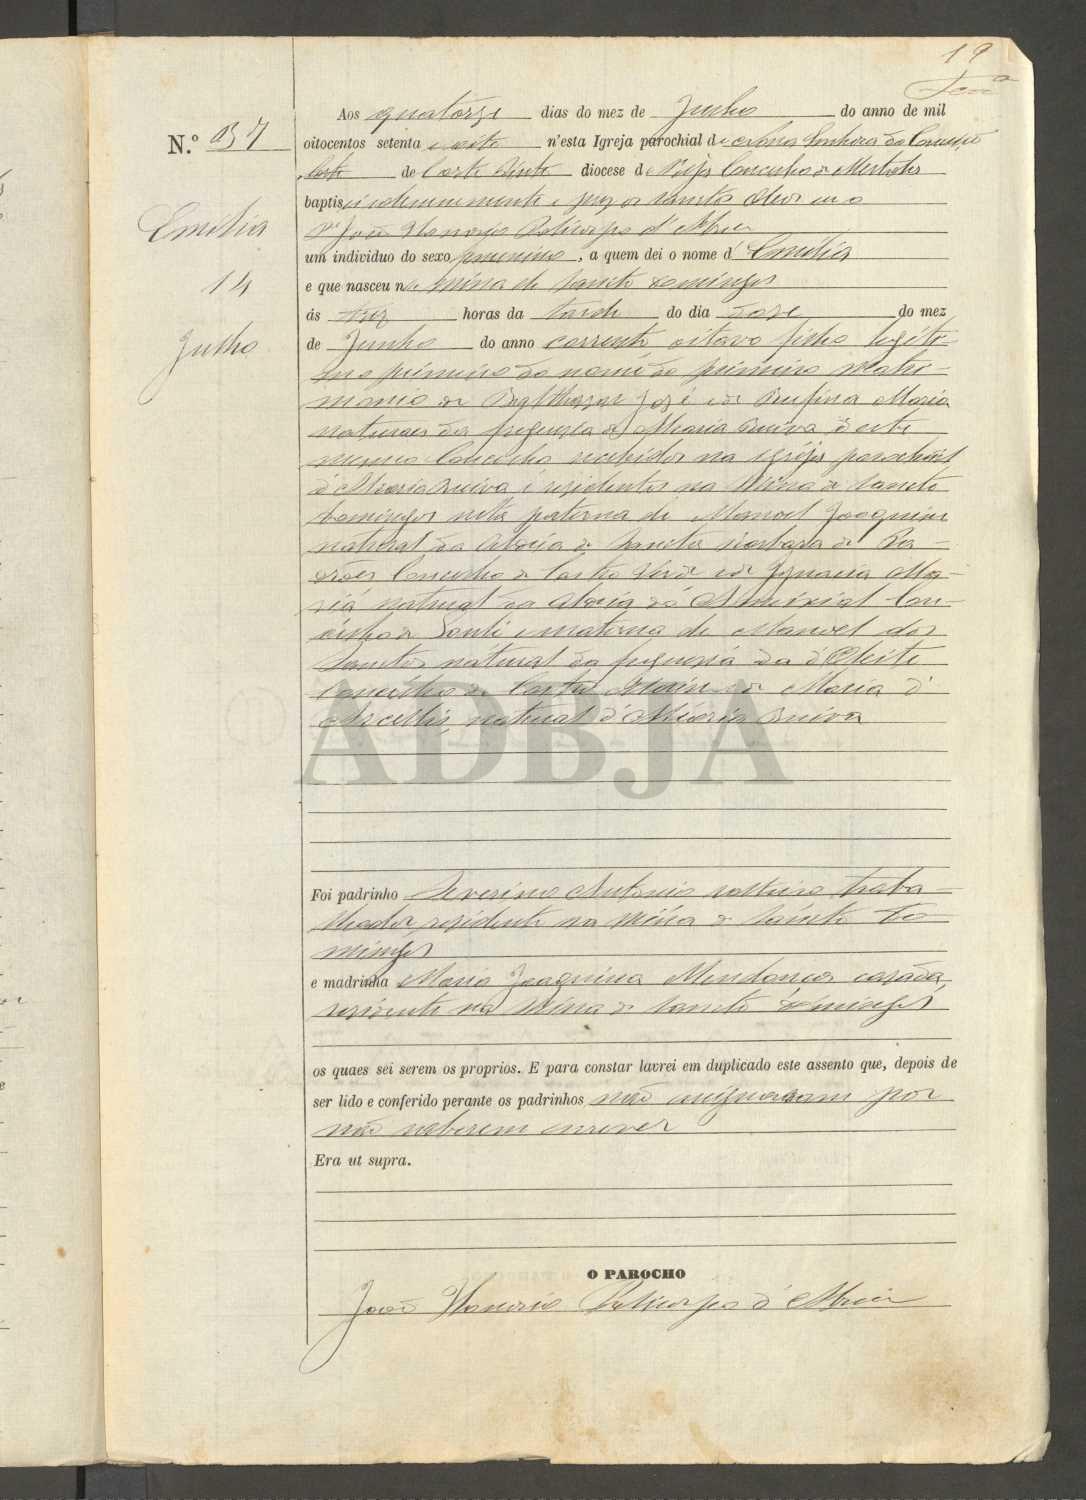 19
Aos quatorze dias do mez de Junho do anno de mil
N.º 37
oitocentos setenta e oito n'esta Igreja parochial de Nossa Senhora da Conceição
de Corte do Pinto diocese de Beja Concelho de Mertola
baptisei solemnemente e puz os sanctos oleos eu o
Pe João Honorio Policarpo d'Abreu
Emilia
um individuo do sexo femenino, a quem dei o nome d' Emilia
14
e que nasceu na Mina de Sancto Domingos
ás trez horas da tarde do dia doze do mez
Junho
de Junho do anno corrente oitavo filho legiti-
mo primeiro do nome do primeiro Matri-
monio de Balthazar José e de Rufina Maria
naturaes da freguezia de Alcaria Ruiva d'este
mesmo Concelho recebidos na igreja parochial
d'Alcaria Ruiva e residentes na Mina de Sancto
Domingos neta paterna de Manoel Joaquim
natural da Aldeia de Sancta Barbara de Pa-
drões Concelho de Castro Verde e de Ignacia Ma-
ria natural da Aldeia do Ameixial Con-
celho de Loulé e materna de Manoel dos
Sanctos natural da freguezia d'Odeleite
Concelho de Castro Marim e de Maria d'
natural d'Alcaria Ruiva
ADBJA
Foi padrinho Severino Antonio solteiro traba-
lhador, residente na Mina de Sancto Do-
mingos
e madrinha Maria Joaquina Mendonça cazada,
residente na Mina de Sancto Domingos,
os quaes sei serem os proprios. E para constar lavrei em duplicado este assento que, depois de
ser lido e conferido perante os padrinhos não assignaram por
não saberem escrever
Era ut supra.
O PAROCHO
João Honorio Policarpo d'Abreu